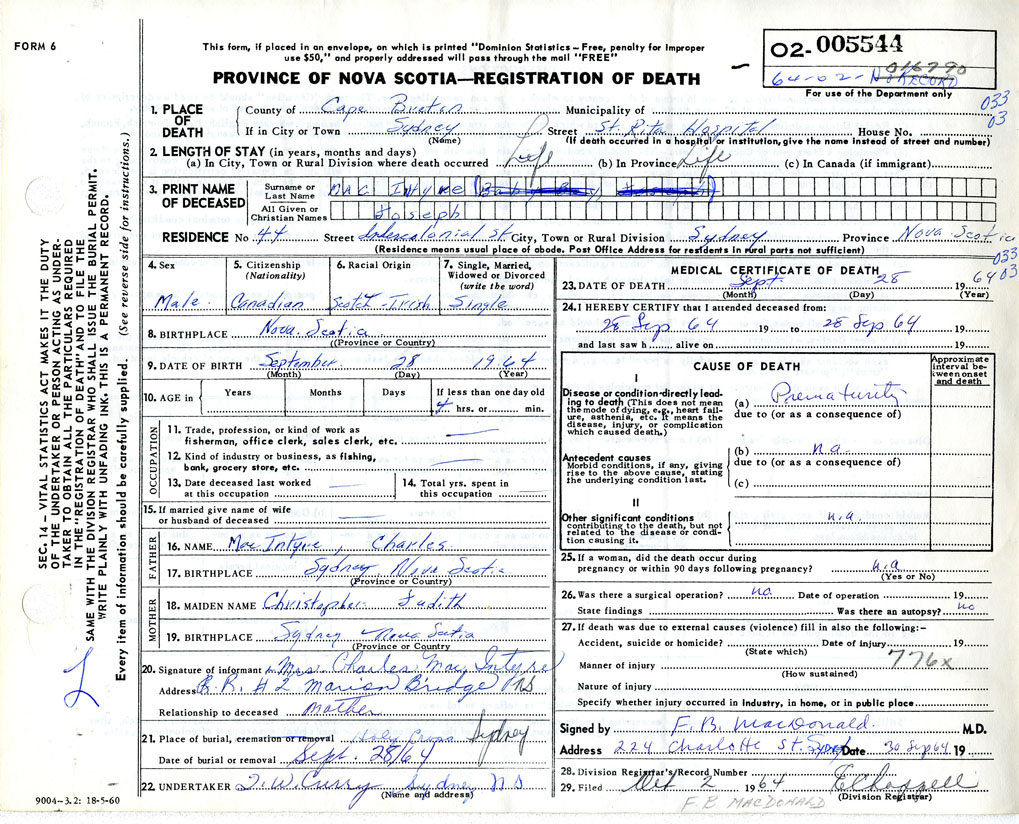 FORM 6
This form, if placed in an envelope, on which is printed "Dominion Statistics – Free, penalty for improper
use $50," and properly addressed will pass through the mail "FREE"
PROVINCE OF NOVA SCOTIA—REGISTRATION OF DEATH
O2-005544
016790
64-02- No RECORD
For use of the Department only
033
03
1. PLACE OF DEATH
County of Cape Breton Municipality of
If in City or Town Sydney Street St. Rita Hospital House No.
(Name) (If death occurred in a hospital or institution, give the name instead of street and number)
2. LENGTH OF STAY (in years, months and days)
(a) In City, Town or Rural Division where death occurred Life (b) In Province Life (c) In Canada (if immigrant)
3. PRINT NAME OF DECEASED
Surname or Last Name Mac Intyre (Baby Boy Joseph)
All Given or Christian Names Joseph
RESIDENCE No 44 Street Intercolonial St. City, Town or Rural Division Sydney Province Nova Scotia
(Residence means usual place of abode. Post Office Address for residents in rural parts not sufficient)
033
03
4. Sex
Male
5. Citizenship
(Nationality)
Canadian
6. Racial Origin
Scotch-Irish
7. Single, Married,
Widowed or Divorced
(write the word)
Single
8. BIRTHPLACE Nova Scotia
(Province or Country)
9. DATE OF BIRTH September 28 1964
(Month) (Day) (Year)
10. AGE in
Years Months Days If less than one day old
4 hrs. or min.
OCCUPATION
11. Trade, profession or kind of work as
fisherman, office clerk, sales clerk, etc. —
12. Kind of industry or business, as fishing,
bank, grocery store, etc. —
13. Date deceased last worked
at this occupation —
14. Total yrs. spent in
this occupation —
15. If married give name of wife
or husband of deceased —
FATHER
16. NAME Mac Intyre, Charles
17. BIRTHPLACE Sydney Nova Scotia
(Province or Country)
MOTHER
18. MAIDEN NAME Christopher Judith
19. BIRTHPLACE Sydney Nova Scotia
(Province or Country)
20. Signature of informant Mrs. Charles Mac Intyre
Address R.R. #2 Marion Bridge NS
Relationship to deceased Mother
21. Place of burial, cremation or removal Holy Cross Sydney
Date of burial or removal Sept. 28/64
22. UNDERTAKER T. W. Curry Sydney N S
(Name and address)
9004-3.2: 18-5-60
MEDICAL CERTIFICATE OF DEATH
23. DATE OF DEATH Sept. 28 64
(Month) (Day) (Year)
24. I HEREBY CERTIFY that I attended deceased from:
28 Sep 64 19 to 28 Sep 64 19
and last saw h alive on 19
CAUSE OF DEATH
Approximate
interval be-
tween onset
and death
I
Disease or condition directly lead-
ing to death (This does not mean
the mode of dying, e.g., heart fail-
ure, asthenia, etc. It means the
disease, injury, or complication
which caused death.)
(a) Prematurity
due to (or as a consequence of)
Antecedent causes
Morbid conditions, if any, giving
rise to the above cause, stating
the underlying condition last.
(b) n.a.
due to (or as a consequence of)
(c)
II
Other significant conditions
contributing to the death, but not
related to the disease or condi-
tion causing it.
n.a.
25. If a woman, did the death occur during
pregnancy or within 90 days following pregnancy? n.a
(Yes or No)
26. Was there a surgical operation? no. Date of operation 19
State findings Was there an autopsy? no
27. If death was due to external causes (violence) fill in also the following:—
Accident, suicide or homicide? Date of injury 19
(State which)
776x
Manner of injury
(How sustained)
Nature of injury
Specify whether injury occurred in industry, in home, or in public place
Signed by F. B. MacDonald. M.D.
Address 224 Charlotte St. Syd Date 30 Sep 64 19
28. Division Registrar's Record Number
29. Filed Oct 2 1964
(Division Registrar)
F B MACDONALD
SEC. 14 – VITAL STATISTICS ACT MAKES IT THE DUTY
OF THE UNDERTAKER OR PERSON ACTING AS UNDER-
TAKER TO OBTAIN ALL THE PARTICULARS REQUIRED
IN THE "REGISTRATION OF DEATH" AND TO FILE THE
SAME WITH THE DIVISION REGISTRAR WHO SHALL ISSUE THE BURIAL PERMIT.
WRITE PLAINLY WITH UNFADING INK. THIS IS A PERMANENT RECORD.
Every item of information should be carefully supplied. (See reverse side for instructions.)